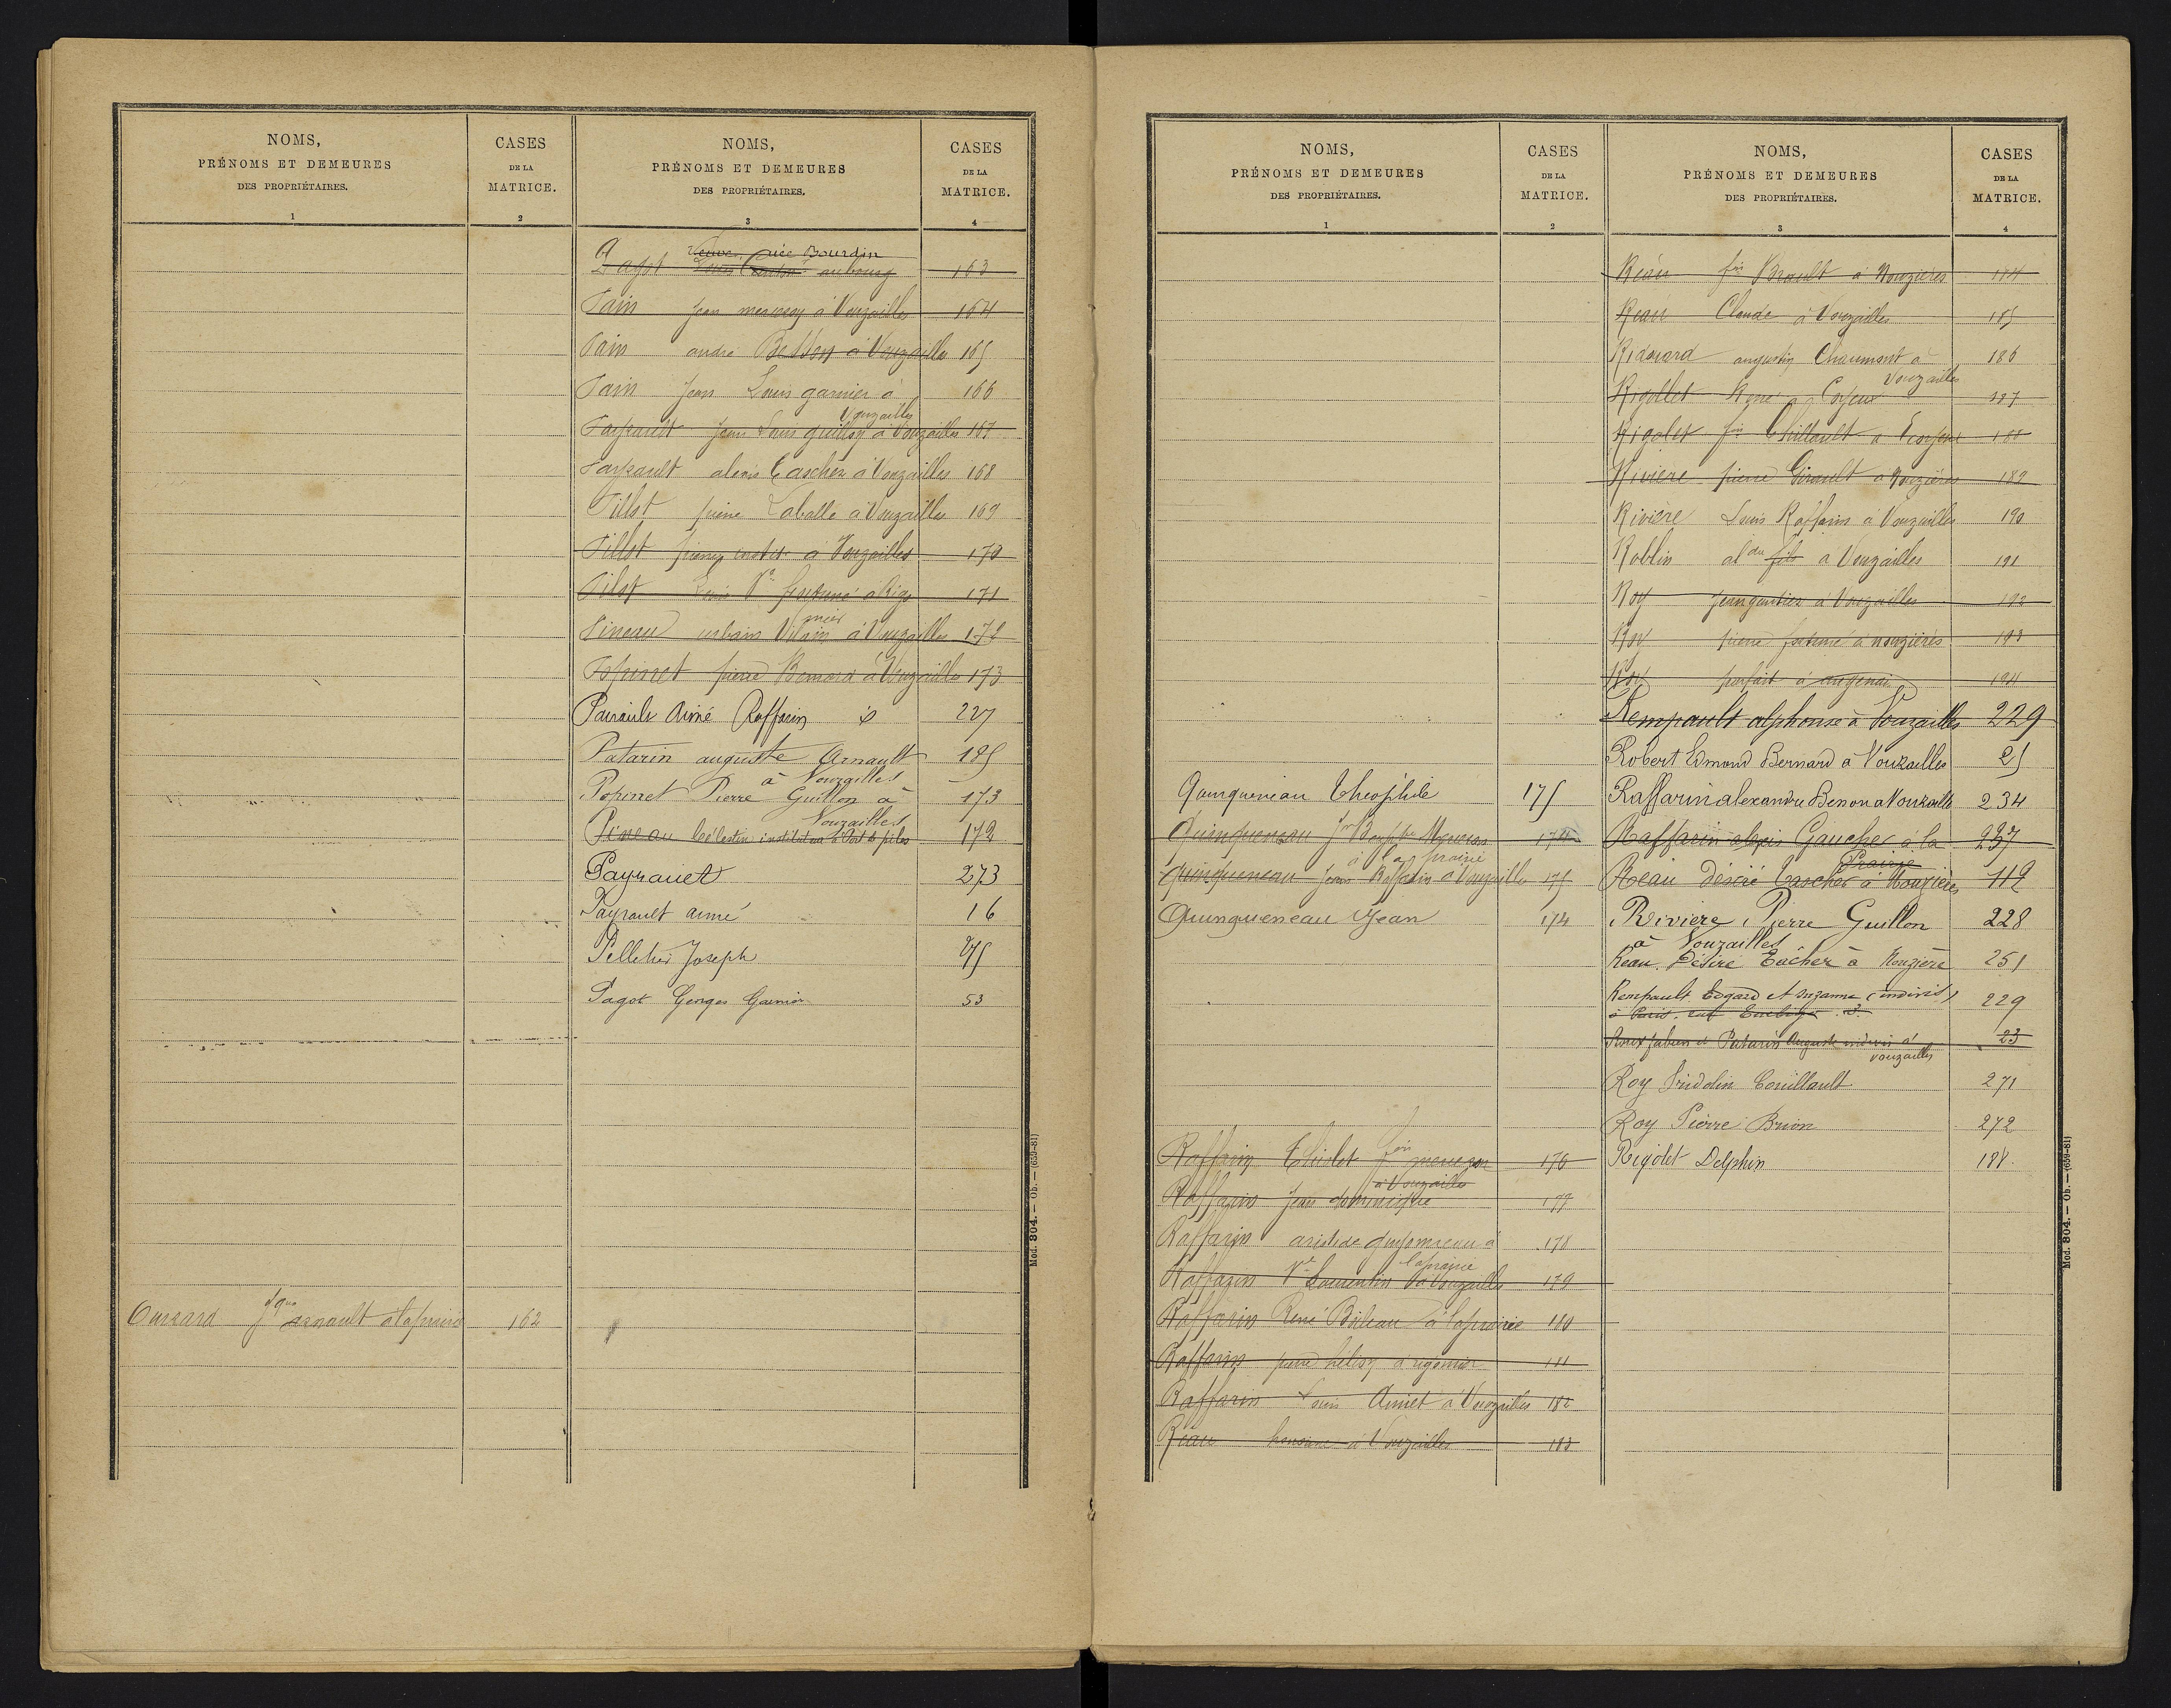 NOMS,
PRÉNOMS ET DEMEURES
DES PROPRIÉTAIRES.
1
CASES
DE LA
MATRICE.
2
Oursard jques arnault a la prairie 162
NOMS,
PRÉNOMS ET DEMEURES
DES PROPRIÉTAIRES.
3
CASES
DE LA
MATRICE.
4
Veuve née Bourdin
Pagot Louis au bourg 163
Pain Jean à Vouzailles 164
Pain andré Besson à Vouzailles 165
Pain Jean Louis garnier à 166
Vouzailles
Jean Louis guillon à Vouzailles 167
alexis Cascher à Vouzailles 168
Pillot pierre Laballe à Vouzailles 169
Pillot pierre à Vouzailles 170
Pilot Louis Ve 171
Pineau urbain à Vouzailles 172
Popinet pierre Bernard à Vouzailles 173
Pairault Aimé Raffarin 227
Patarin auguste Arnault 185
à Vouzailles
Popinet Pierre Guillon à 173
Vouzailles
Pineau Célestin instituteur à Port de piles 172
Payrault 273
Payrault aimé 16
Pelletier Joseph 275
Pagot Georges Garnier 53
Mod. 804. — Ob. — (659-81)
NOMS,
PRÉNOMS ET DEMEURES
DES PROPRIÉTAIRES.
1
CASES
DE LA
MATRICE.
2
Quinqueneau Théophile 175
Quinqueneau 174
à la prairie
Quinqueneau Jean Raffarin à Vouzailles 175
Quinqueneau Jean 174
Raffarin 176
à Vouzailles
Raffarin Jean dominique 177
Raffarin aristide à 178
la prairie
Raffarin Ve Laurentin à Vouzailles 179
Raffarin René à la prairie 180
Raffarin pierre 181
Raffarin Louis Amiet à Vouzailles 182
Réau à Vouzailles 183
NOMS,
PRÉNOMS ET DEMEURES
DES PROPRIÉTAIRES.
3
CASES
DE LA
MATRICE.
4
Réau fois Brault à Nouzières 184
Réau Claude à Vouzailles 185
Ridouard augustin Chaumont à 186
Vouzailles
Rigollet 187
Rigolet fois 188
Rivière pierre Girault à Nouzières 189
Rivière Louis Raffarin à Vouzailles 190
Roblin aldre fils à Vouzailles 191
Roy Jean gautier à Vouzailles 192
Roy pierre fortuné à nouzières 193
Roy parfait à 194
Rempault alphonse à Vouzailles 229
Robert Edmond Bernard à Vouzailles 25
Raffarin alexandre Benon a Vouzailles 234
Raffarin alexis Gaucher à la 237
Prairie
Réau désiré Cascher à Nouzières 112
Rivière Pierre Guillon 228
à Vouzailles
Réau Désiré Câcher à Nouzière 251
Rempault Edgard et Suzanne (indivis) 229
à Paris. rue
Roux fabien et Patarin Auguste indivis à 23
vouzailles
Roy Fridolin Couillault 271
Roy Pierre Brion 272
Rigolet Delphin 188
Mod. 804. — Ob. — (659-81)